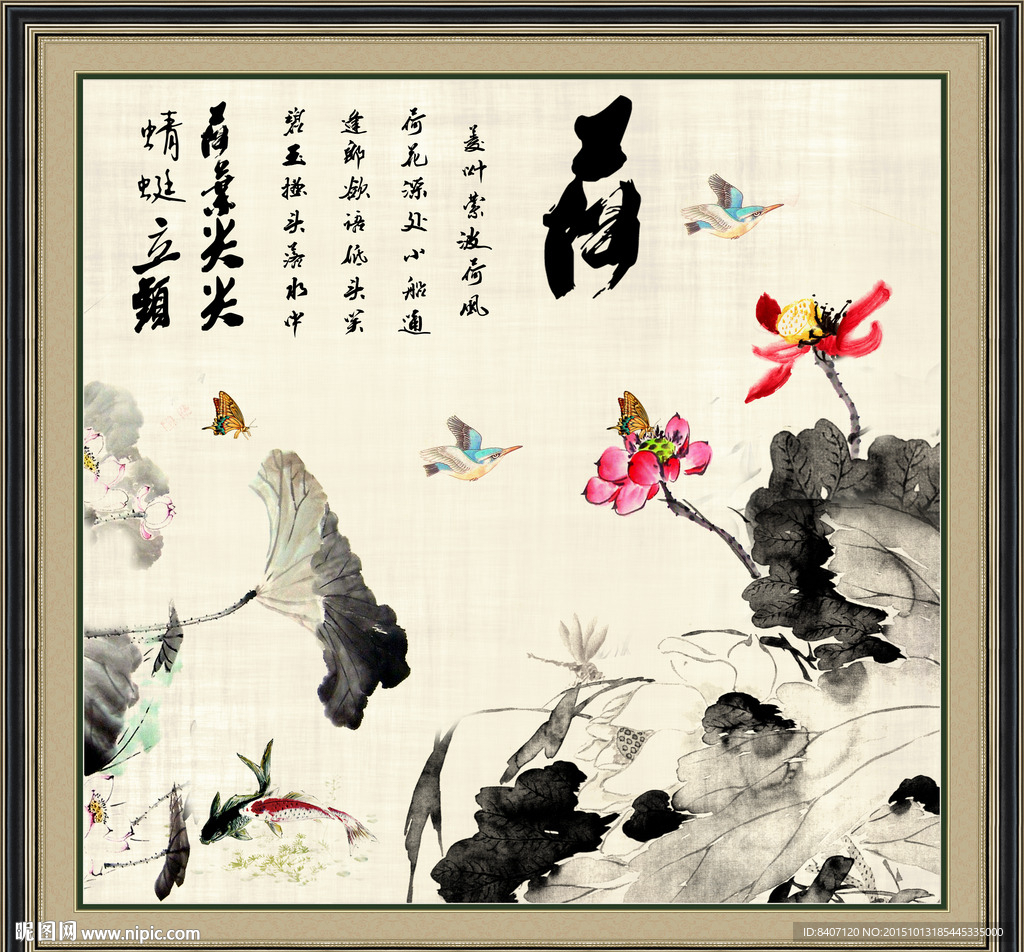 荷
菱叶萦波荷风
荷花深处小船通
逢郎欲语低头笑
碧玉搔头落水中
荷葉尖尖
蜻蜓立頭
昵图网 www.nipic.com
ID:8407120 NO:20151013185445335000